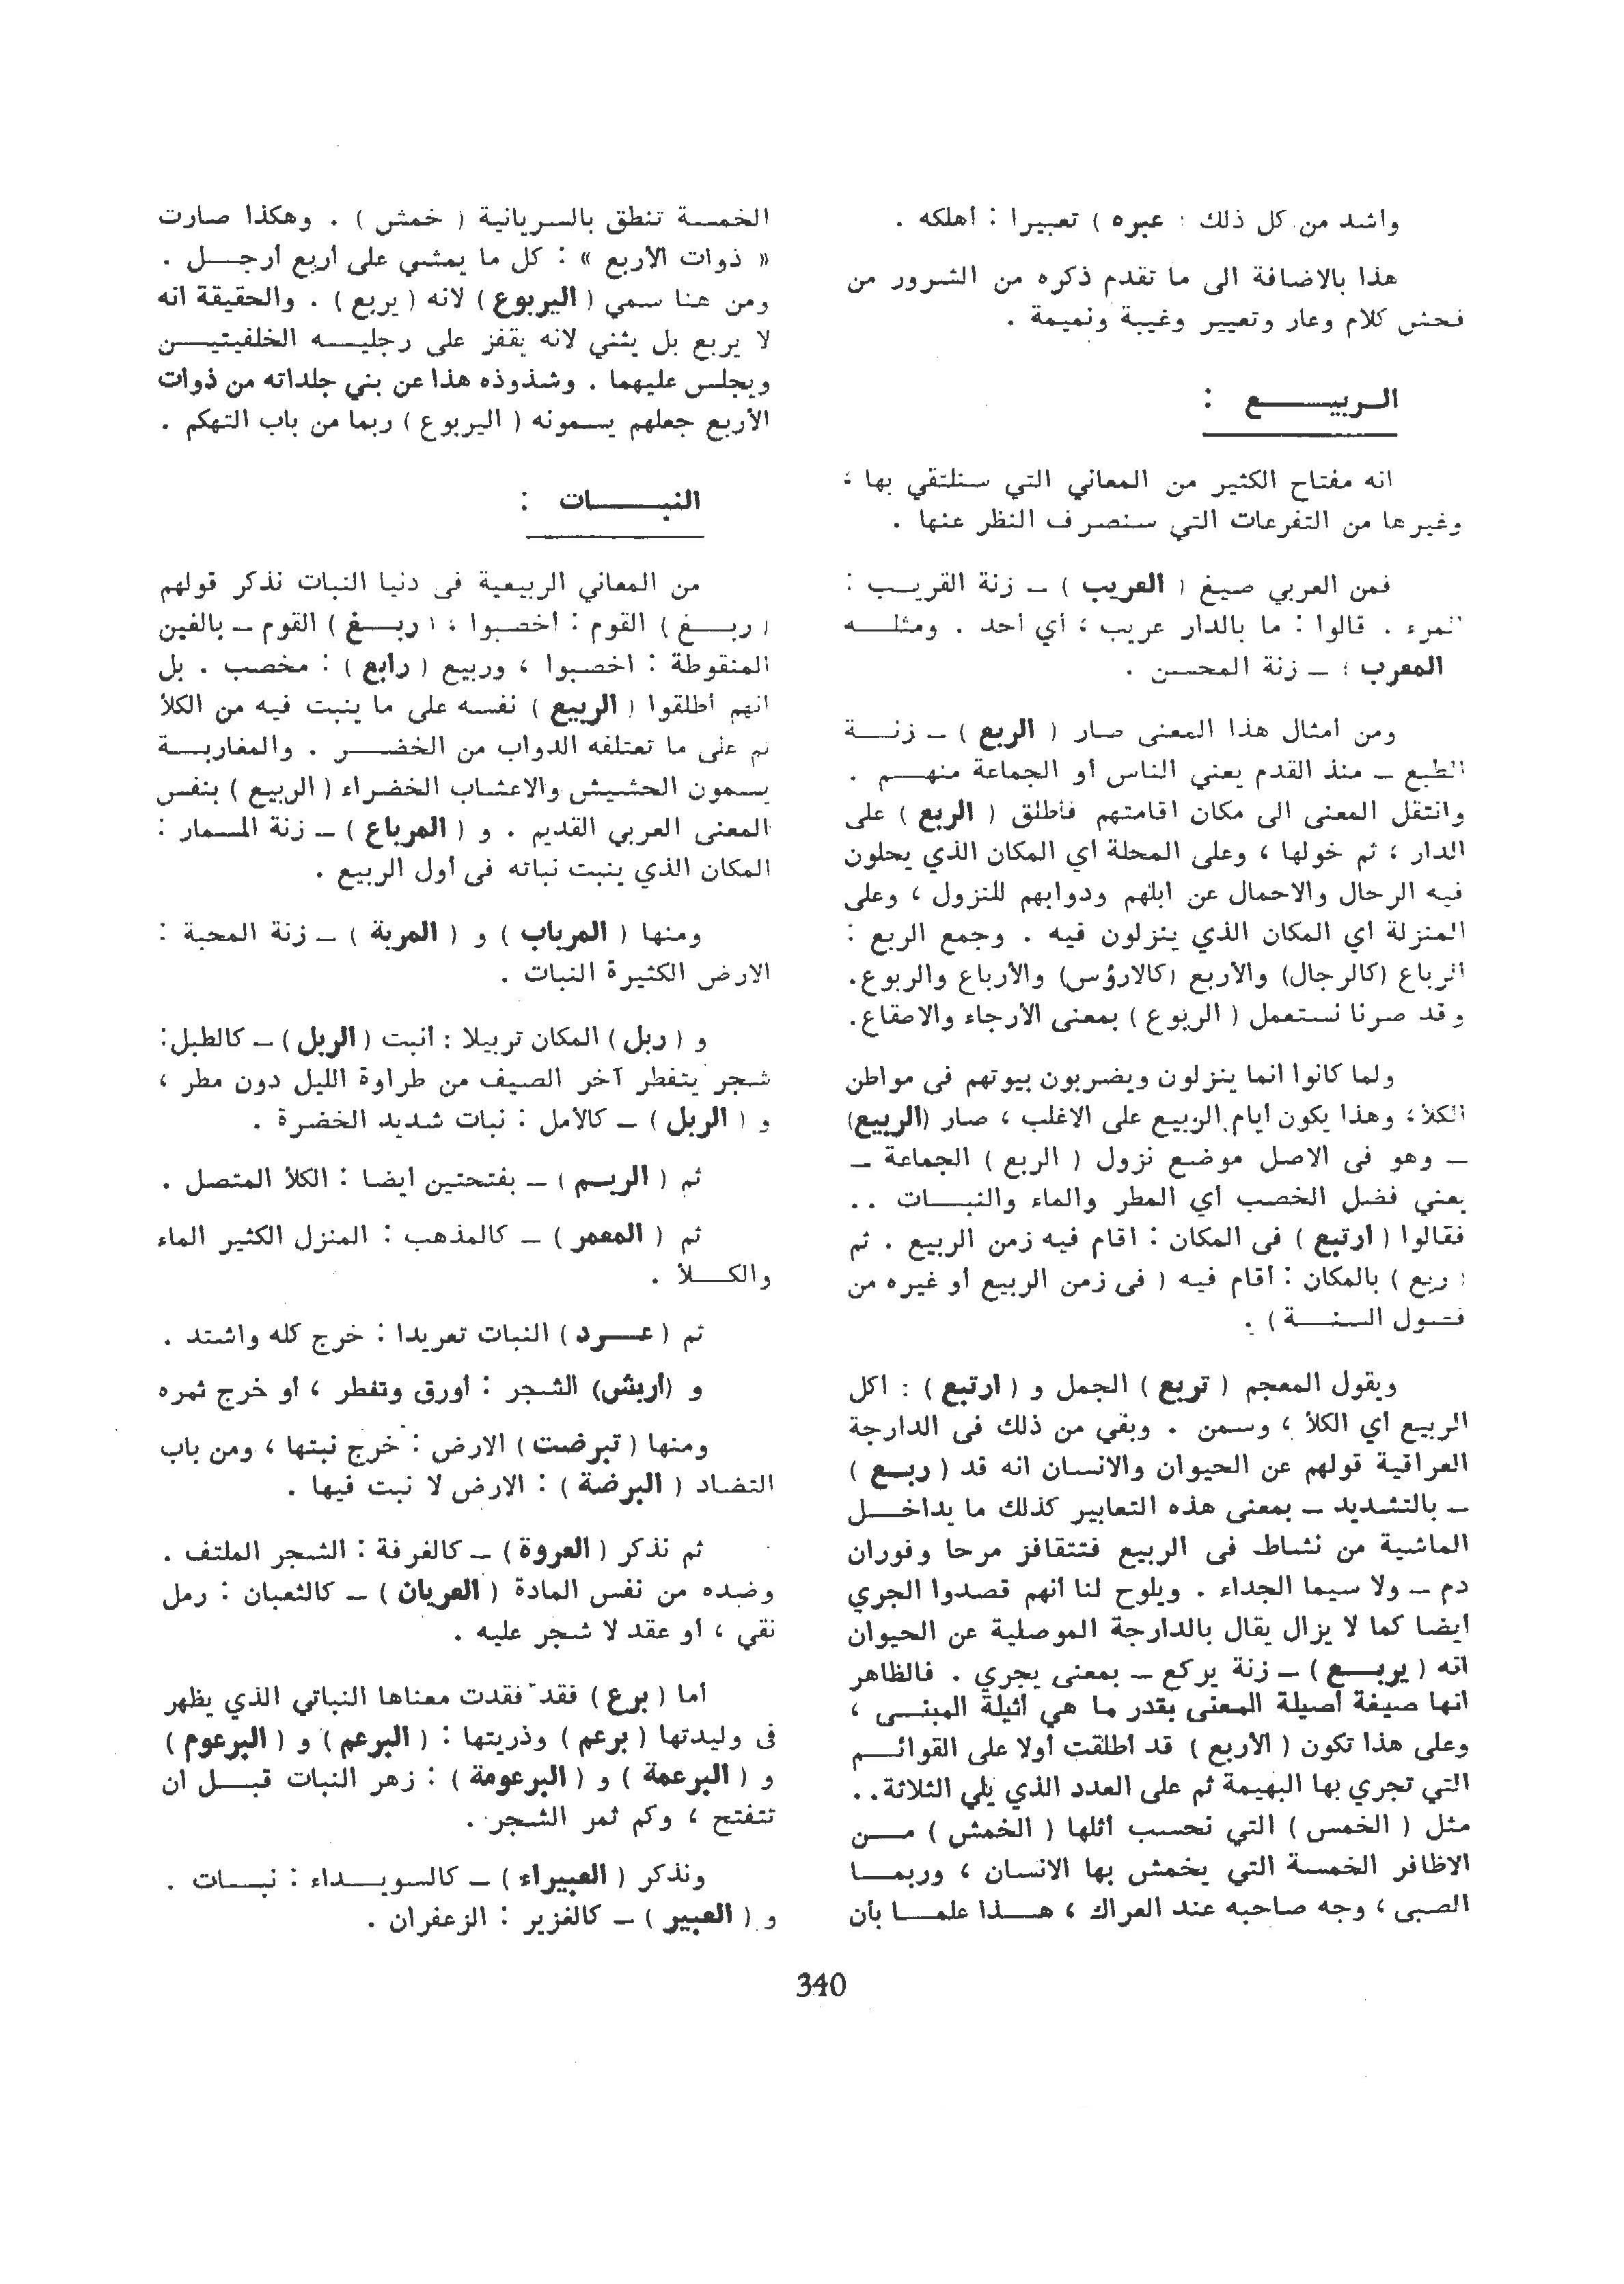 واشد من كل ذلك ( عبره ) تعبيرا : أهلكه .
هذا بالاضافة الى ما تقدم ذكره من الشرور من
فحش كلام وعار وتعيير وغيبة ونميمة .
الربيع :
انه مفتاح الكثير من المعاني التي سنلتقي بها ،
وغيرها من التفرعات التي سنصرف النظر عنها .
فمن العربي صيغ ( العريب ) – زنة القريب :
المرء . قالوا : ما بالدار عريب ، أي أحد . ومثله
المعرب ) – زنة المحسن .
ومن أمثال هذا المعنى صار ( الربع ) – زنة
الطبع – منذ القدم يعني الناس أو الجماعة منهم .
وانتقل المعنى الى مكان اقامتهم فأطلق ( الربع ) على
الدار ، ثم حولها ، وعلى المحلة أي المكان الذي يحلون
فيه الرحال والاحمال عن ابلهم ودوابهم للنزول ، وعلى
المنزلة أي المكان الذي ينزلون فيه . وجمع الربع :
الرباع (كالرجال) والأربع (كالارؤس) والأرباع والربوع.
وقد صرنا نستعمل ( الربوع ) بمعنى الأرجاء والاصقاع.
ولما كانوا انما ينزلون ويضربون بيوتهم فى مواطن
الكلأ، وهذا يكون أيام الربيع على الاغلب ، صار (الربيع)
– وهو فى الاصل موضع نزول ( الربع ) الجماعة –
يعني فضل الخصب أي المطر والماء والنبات ..
فقالوا ( ارتبع ) فى المكان : اقام فيه زمن الربيع . ثم
( ربع ) بالمكان : أقام فيه ( فى زمن الربيع أو غيره من
فصول السنة ) .
ويقول المعجم ( تربع ) الجمل و ( ارتبع ) : اكل
الربيع أي الكلأ ، وسمن . وبقي من ذلك فى الدارجة
العراقية قولهم عن الحيوان والانسان انه قد ( ربع )
– بالتشديد – بمعنى هذه التعابير كذلك ما يداخل
الماشية من نشاط فى الربيع فتتقافز مرحا وفوران
دم – ولا سيما الجداء . ويلوح لنا أنهم قصدوا الجري
أيضا كما لا يزال يقال بالدارجة الموصلية عن الحيوان
انه ( يربع ) – زنة يركع – بمعنى يجري . فالظاهر
انها صيغة أصيلة المعنى بقدر ما هي أثيلة المبنى ،
وعلى هذا تكون ( الأربع ) قد أطلقت أولا على القوائم
التي تجري بها البهيمة ثم على العدد الذي يلي الثلاثة..
مثل ( الخمس ) التي نحسب أثلها ( الخمش ) من
الاظافر الخمسة التي يخمش بها الانسان ، وربما
الصبى ، وجه صاحبه عند العراك ، هذا علما بأن
الخمسة تنطق بالسريانية ( خمش ) . وهكذا صارت
« ذوات الأربع » : كل ما يمشي على أربع أرجل .
ومن هنا سمي ( اليربوع ) لانه ( يربع ) . والحقيقة انه
لا يربع بل يثني لانه يقفز على رجليه الخلفيتين
ويجلس عليهما . وشذوذه هذا عن بني جلداته من ذوات
الأربع جعلهم يسمونه ( اليربوع ) ربما من باب التهكم .
النبات :
من المعاني الربيعية فى دنيا النبات نذكر قولهم
( ربغ ) القوم : أخصبوا ، ( ربغ ) القوم – بالغين
المنقوطة : اخصبوا ، وربيع ( رابع ) : مخصب . بل
انهم أطلقوا ( الربيع ) نفسه على ما ينبت فيه من الكلأ
ثم على ما تعتلفه الدواب من الخضر . والمغاربة
يسمون الحشيش والاعشاب الخضراء ( الربيع ) بنفس
المعنى العربي القديم . و ( المرباع ) – زنة المسمار :
المكان الذي ينبت نباته فى أول الربيع .
ومنها ( المرباب ) و ( المربة ) – زنة المحبة :
الارض الكثيرة النبات .
و ( ربل ) المكان تربيلا : انبت ( الربل ) – كالطبل:
شجر يتفطر آخر الصيف من طراوة الليل دون مطر ،
و ( الربل ) – كالأمل : نبات شديد الخضرة .
ثم ( الربم ) – بفتحتين أيضا : الكلأ المتصل .
ثم ( المعمر ) – كالمذهب : المنزل الكثير الماء
والكلأ .
ثم ( عرد ) النبات تعريدا : خرج كله واشتد .
و (أربش) الشجر : أورق وتفطر ، أو خرج ثمره
ومنها ( تبرضت ) الارض : خرج نبتها ، ومن باب
التضاد ( البرضة ) : الارض لا نبت فيها .
ثم نذكر ( العروة ) – كالغرفة : الشجر الملتف .
وضده من نفس المادة ( العريان ) – كالثعبان : رمل
نقي ، أو عقد لا شجر عليه .
أما ( برع ) فقد فقدت معناها النباتي الذي يظهر
فى وليدتها ( برعم ) وذريتها : ( البرعم ) و ( البرعوم )
و ( البرعمة ) و ( البرعومة ) : زهر النبات قبل ان
تتفتح ، وكم ثمر الشجر .
ونذكر ( العبيراء ) – كالسويداء : نبات .
و ( العبير ) – كالغزير : الزعفران .
340